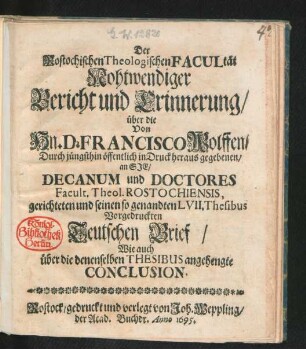 Der
Rostochischen Theologischen FACULtät
Nohtwendiger
Bericht und Erinnerung/
über die
Von
Hn. D. FRANCISCO Wolffen/
Durch jüngsthin öffentlich in Druck heraus gegebenen/
an SIE/
DECANUM und DOCTORES
Facult. Theol. ROSTOCHIENSIS,
gerichteten und seinen so genandten LVII, Thesibus
Vorgedruckten
Teutschen Brief/
Wie auch
über die denenselben THESIBUS angehengte
CONCLUSION.
Königl.
Bibliothek
Berlin
Rostock/gedruckt und verlegt von Joh. Weppling/
der Acad. Buchdr. Anno 1695.